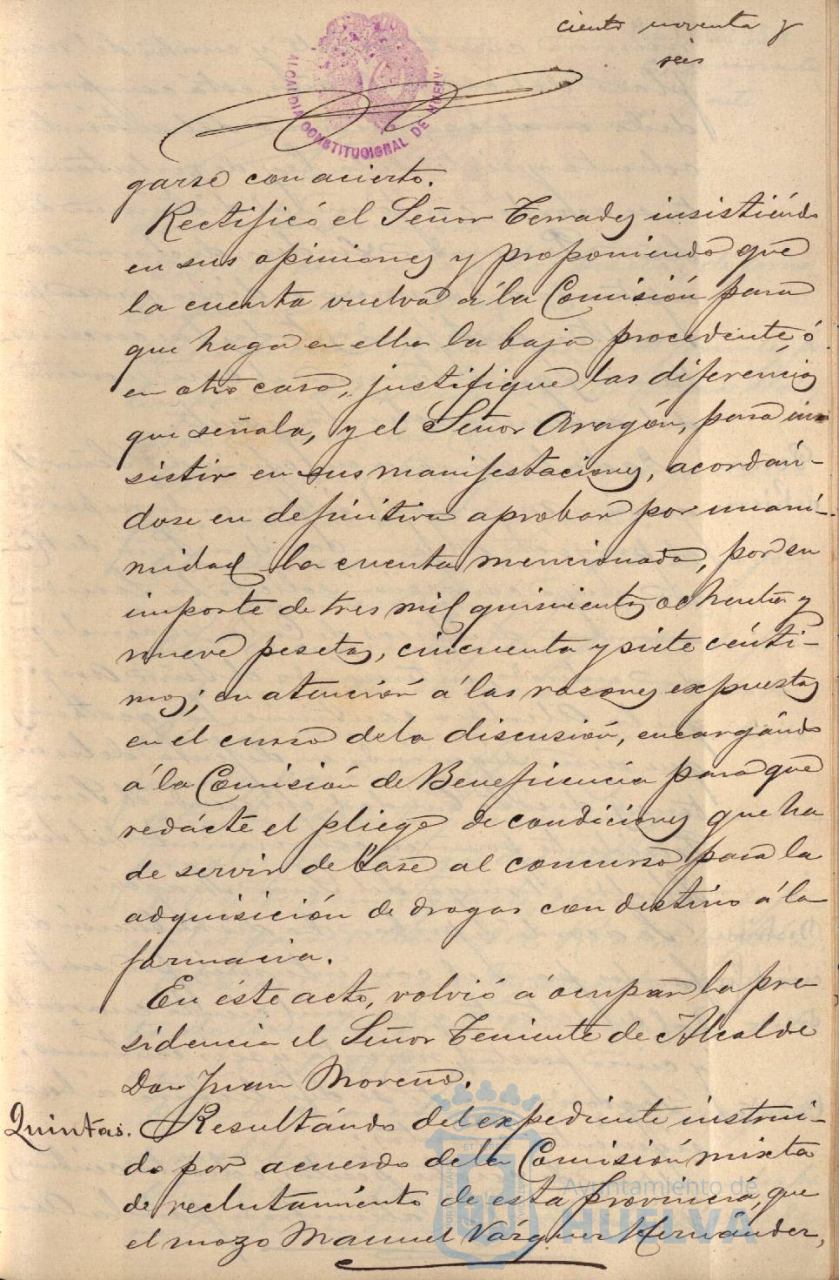 ciento noventa y
seis
ALCALDIA CONSTITUCIONAL DE HUELVA
garse con acierto.
Rectificó el Señor Terrades insistiéndo
en sus opiniones y proponiendo que
la cuenta vuelva á la Comisión para
que haga en ella la baja procedente, ó
en otro caso, justifique las diferencias
que señala, y el Señor Aragón, para in
sistir en sus manifestaciones, acordán-
dose en definitiva aprobar por unani-
midad la cuenta mencionada, por su
importe de tres mil quinientas ochenta y
nueve pesetas, cincuenta y siete cénti-
mos; en atención á las razones expuestas
en el curso de la discusión, encargándo
á la Comisión de Beneficencia para que
redácte el pliego de condiciones que ha
de servir de base al concurso para la
adquisición de drogas con destino á la
farmacia.
En éste acto, volvió á ocupar la pre
sidencia el Señor Teniente de Alcalde
Don Juan Moreno.
Quintas. Resultándo del expediente instrui-
do por acuerdo de la Comisión mixta
de reclutamiento de esta provincia, que
el mozo Manuel Vázquez Hernández,
Ayuntamiento de
HUELVA